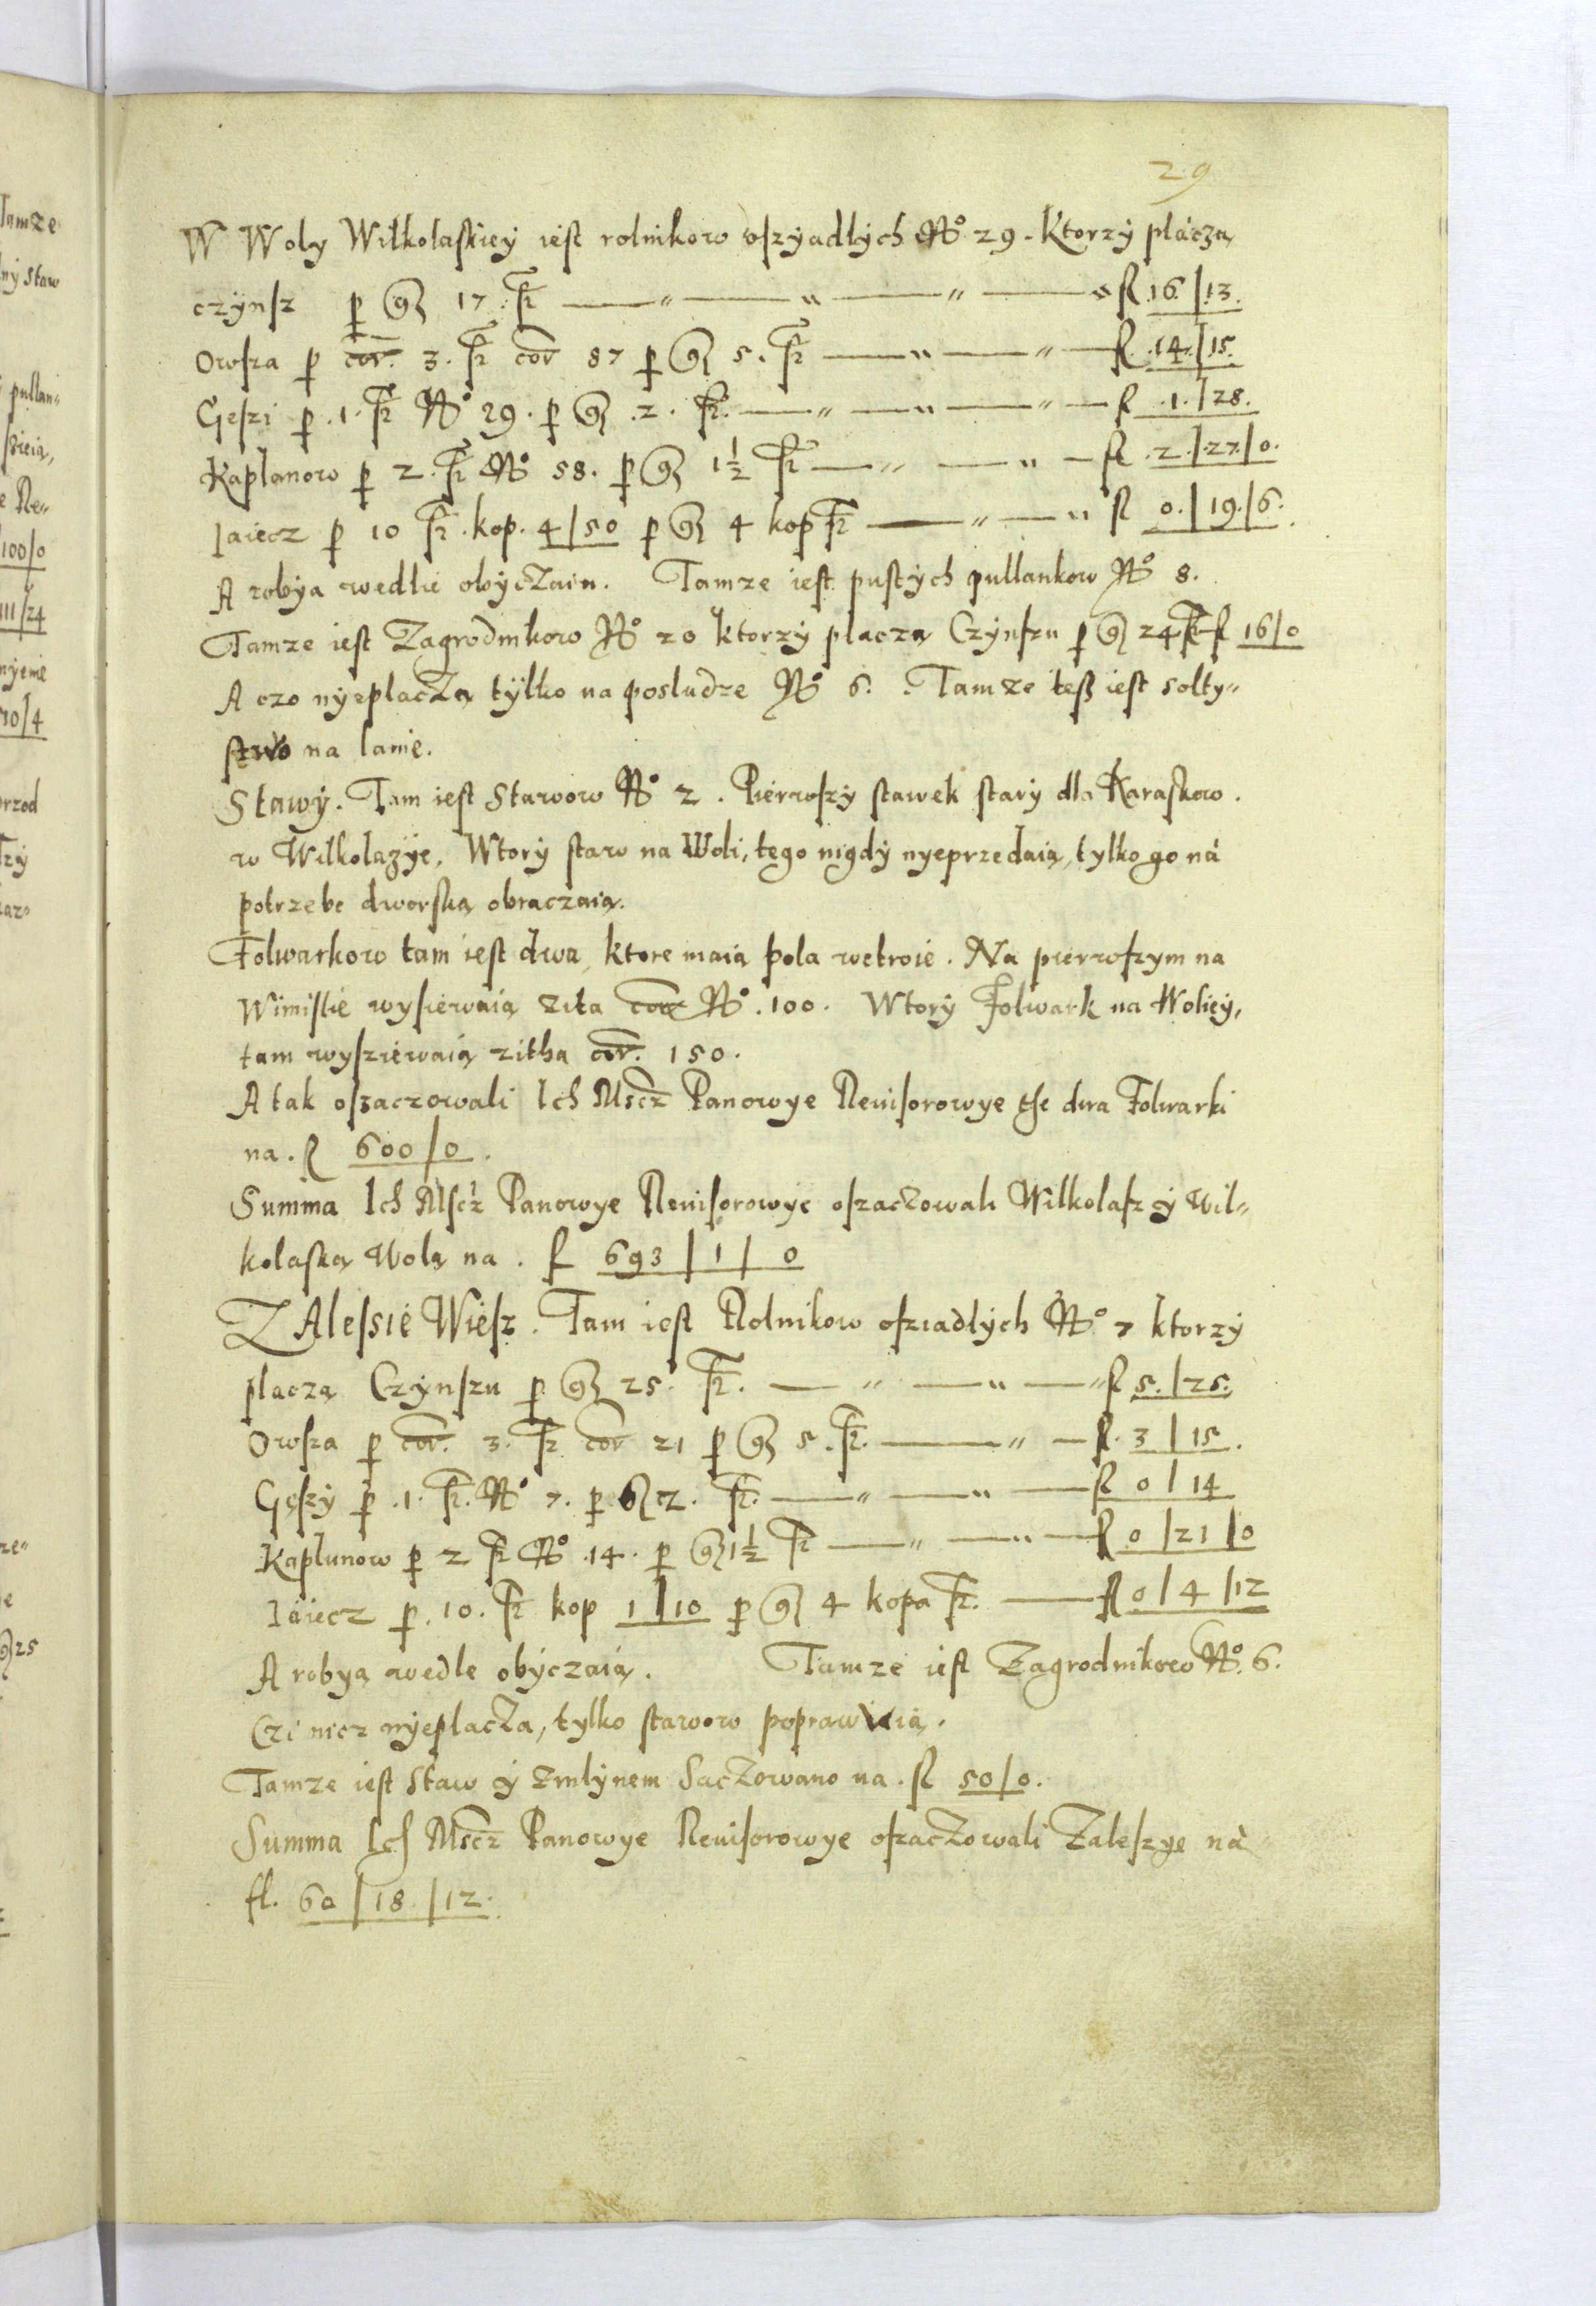 29
W Woly Wilkolaskiey iest rolnikow oszyadlych No 29. Ktorzy placza
czynsz per gr 17. fr fl 16/13.
Owsza per cor. 3. fr cor 87 per gr 5. fr fl 14/15.
Geszi per .1. fr No 29. per gr .2. fr. fl .1./28.
Kaplonow per 2. fr No 58. per gr 1½ fr fl .2./27/0.
Iaiecz per 10 fr. kop. 4/50 per gr 4 kop fr fl 0./19./6.
A robya wedlie obyczaiu. Tamze iest pustych pullankow No 8.
Tamze iest Zagrodnikow No 20 ktorzy placza Czynszu per gr 24 fr fl 16/0
A czo nyeplacza tylko na posludze No 6. Tamze tesz iest solty„
stwo na lanie.
Stawy. Tam iest Stawow No 2. Pierwszy stawek stary dla Karaskow.
w Wilkolazye. Wtory staw na Woli, tego nigdy nyeprzedaią, tylko go ná
potrzebe dworską obraczaią.
Folwarkow tam iest dwa, ktore maią pola wetroie. Na pierwszym na
Wimislie wysiewaią zita cor No .100. Wtory Folwark na Woliey,
tam wysziewaią zitha cor. 150.
A tak oszaczowali Ich Mscz Panowye Reuisorowye the dwa Folwarki
na. fl 600/0.
Summa Ich Mscz Panowye Reuisorowye oszaczowali Wilkolasz y Wil„
kolaską Wolą na. fl 693/1/0
ZAlessie Wiesz. Tam iest Rolnikow osziadlych No 7 ktorzy
placzą Czynszu per gr 25. fr. fl 5./25.
Owsza per cor. 3. fr cor 21 per gr 5. fr. fl. 3/15.
Gęszy per .1. fr. No 7. per gr 2. fr. fl 0/14
Kaplunow per 2 fr No .14. per gr 1½ fr fl 0/21/0
Iaiecz per .10. fr kop 1/10 per gr 4 kopa fr. fl 0/4/12
A robyą wedle obyczaią. Tamze iest Zagrodnikow No. 6.
Czi nicz nyeplacza, tylko stawow poprawuią.
Tamze iest Staw y zmlynem Saczowano na. fl 50/0.
Summa Ich Mscz Panowye Reuisorowye oszaczowali Zaleszye ná
fl. 60/18./12.